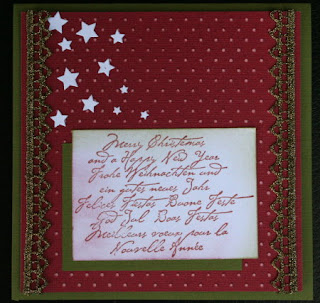 Merry Christmas
and a Happy New Year
Frohe Weihnachten und
ein gutes neues Jahr
Felices Fiestas Buone Feste
God Jul Boas Festas
Meilleurs voeux pour la
Nouvelle Année